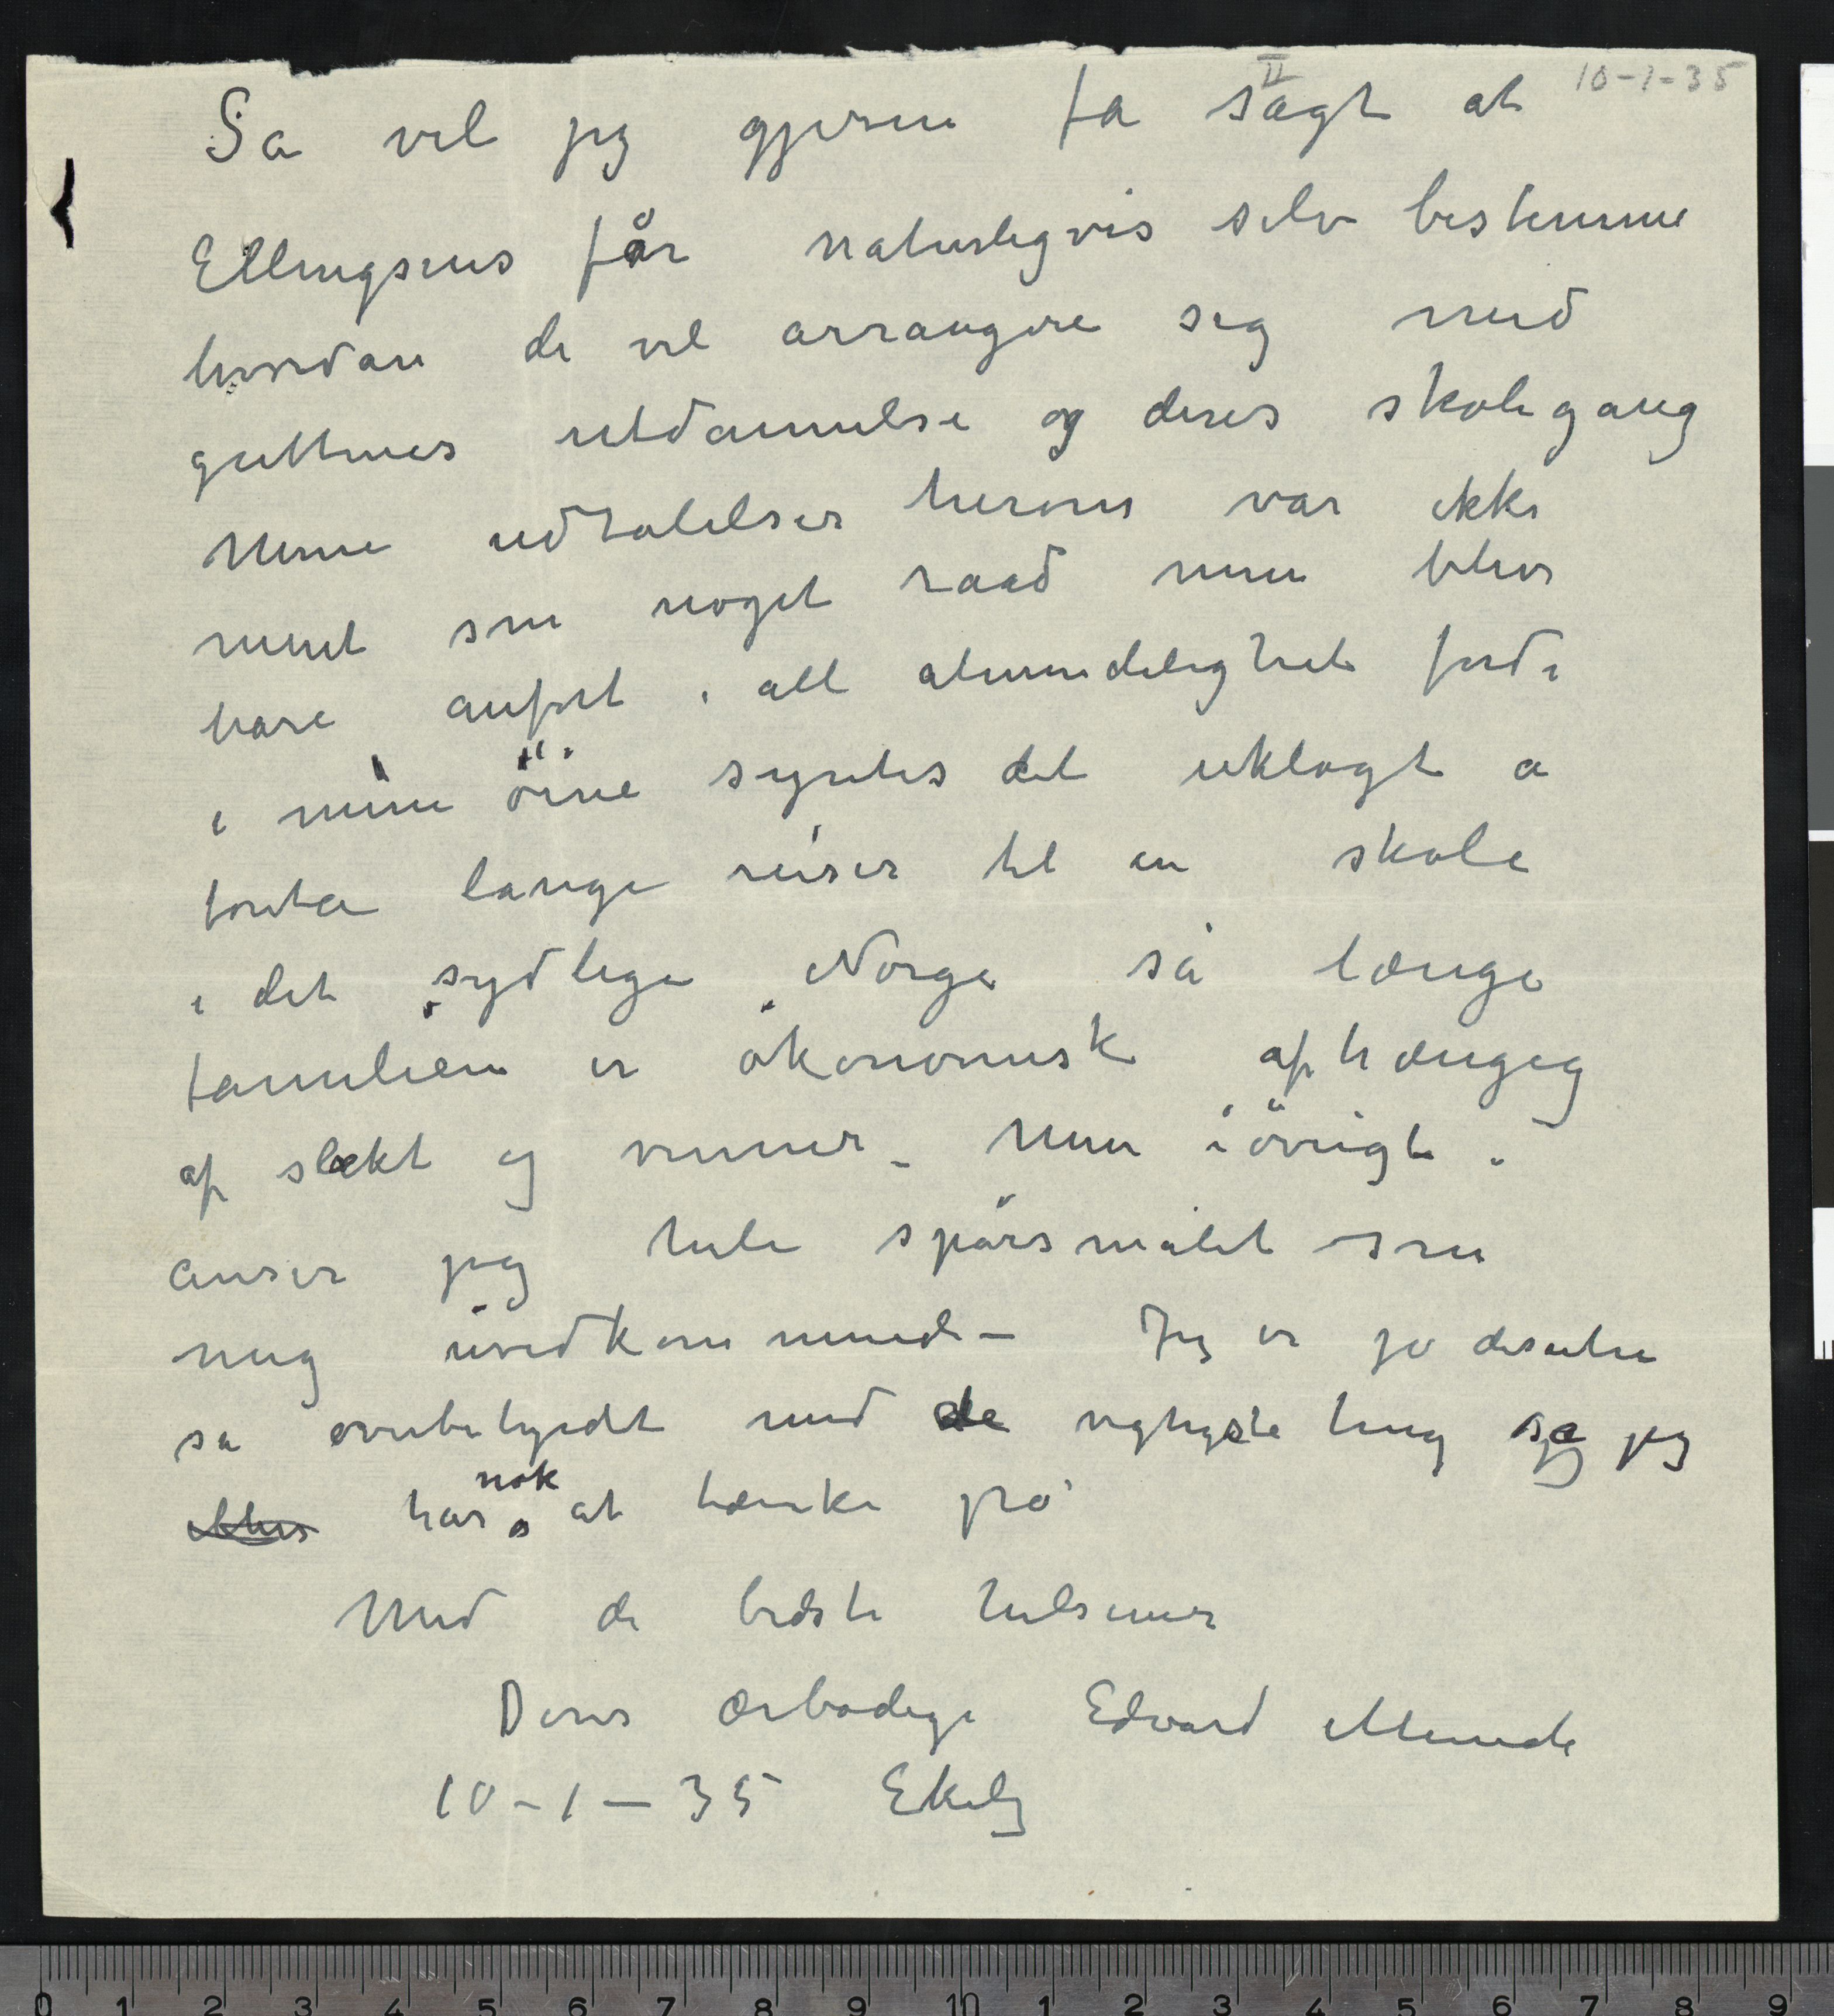 II 10-1-35
Så vil jeg gjerne få sagt at
Ellingsens får naturligvis selv bestemme
hvordan de vil arrangere seg med
guttenes utdannelse og deres skolegang
Mine udtalelser herom var ikke
ment som noget raad men blev
bare anført i all almindelighet fordi
i mine öine syntes det uklogt a
foreta lange reiser til en skole
i det sydlige Norge så længe
familien er økonomisk afhængig
af slækt og venner – Men iövrigt
anser jeg hele spörsmålet som
mig uvedkommende – Jeg er jo desuten
så overbebyrdet med de vigtigste ting så jeg
har nok at tænke på
Med de bedste hilsener
Deres ærbødige Edvard Munch
10-1-35 Ekely
0 1 2 3 4 5 6 7 8 9 10 1 2 3 4 5 6 7 8 9